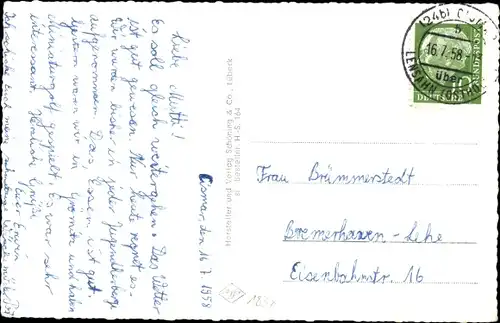 Cismar, den 16.7.1958
Liebe Mutti!
Es soll gleich weitergehen. Das Wetter
ist gut gewesen. Nur heute regnet es.
Wir wurden bisher in jeder Jugendherberge
aufgenommen. Das Essen ist gut.
Gestern waren wir in Grömitz und haben
Miniaturgolf gespielt. Es war sehr
interessant. Herzliche Grüße
Euer Erwin
Hersteller und Verlag Schöning & Co., Lübeck
(24b)
16.7.58
über
LENSAHN (OSTHOLST)
DEUTSCHE BUNDESPOST
10
Frau Brümmerstedt
Bremerhaven-Lehe
Eisenbahnstr. 16